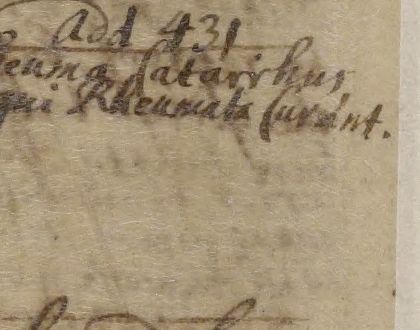 Add 431
heuma Catarrhus
qui Rheumata Curant.